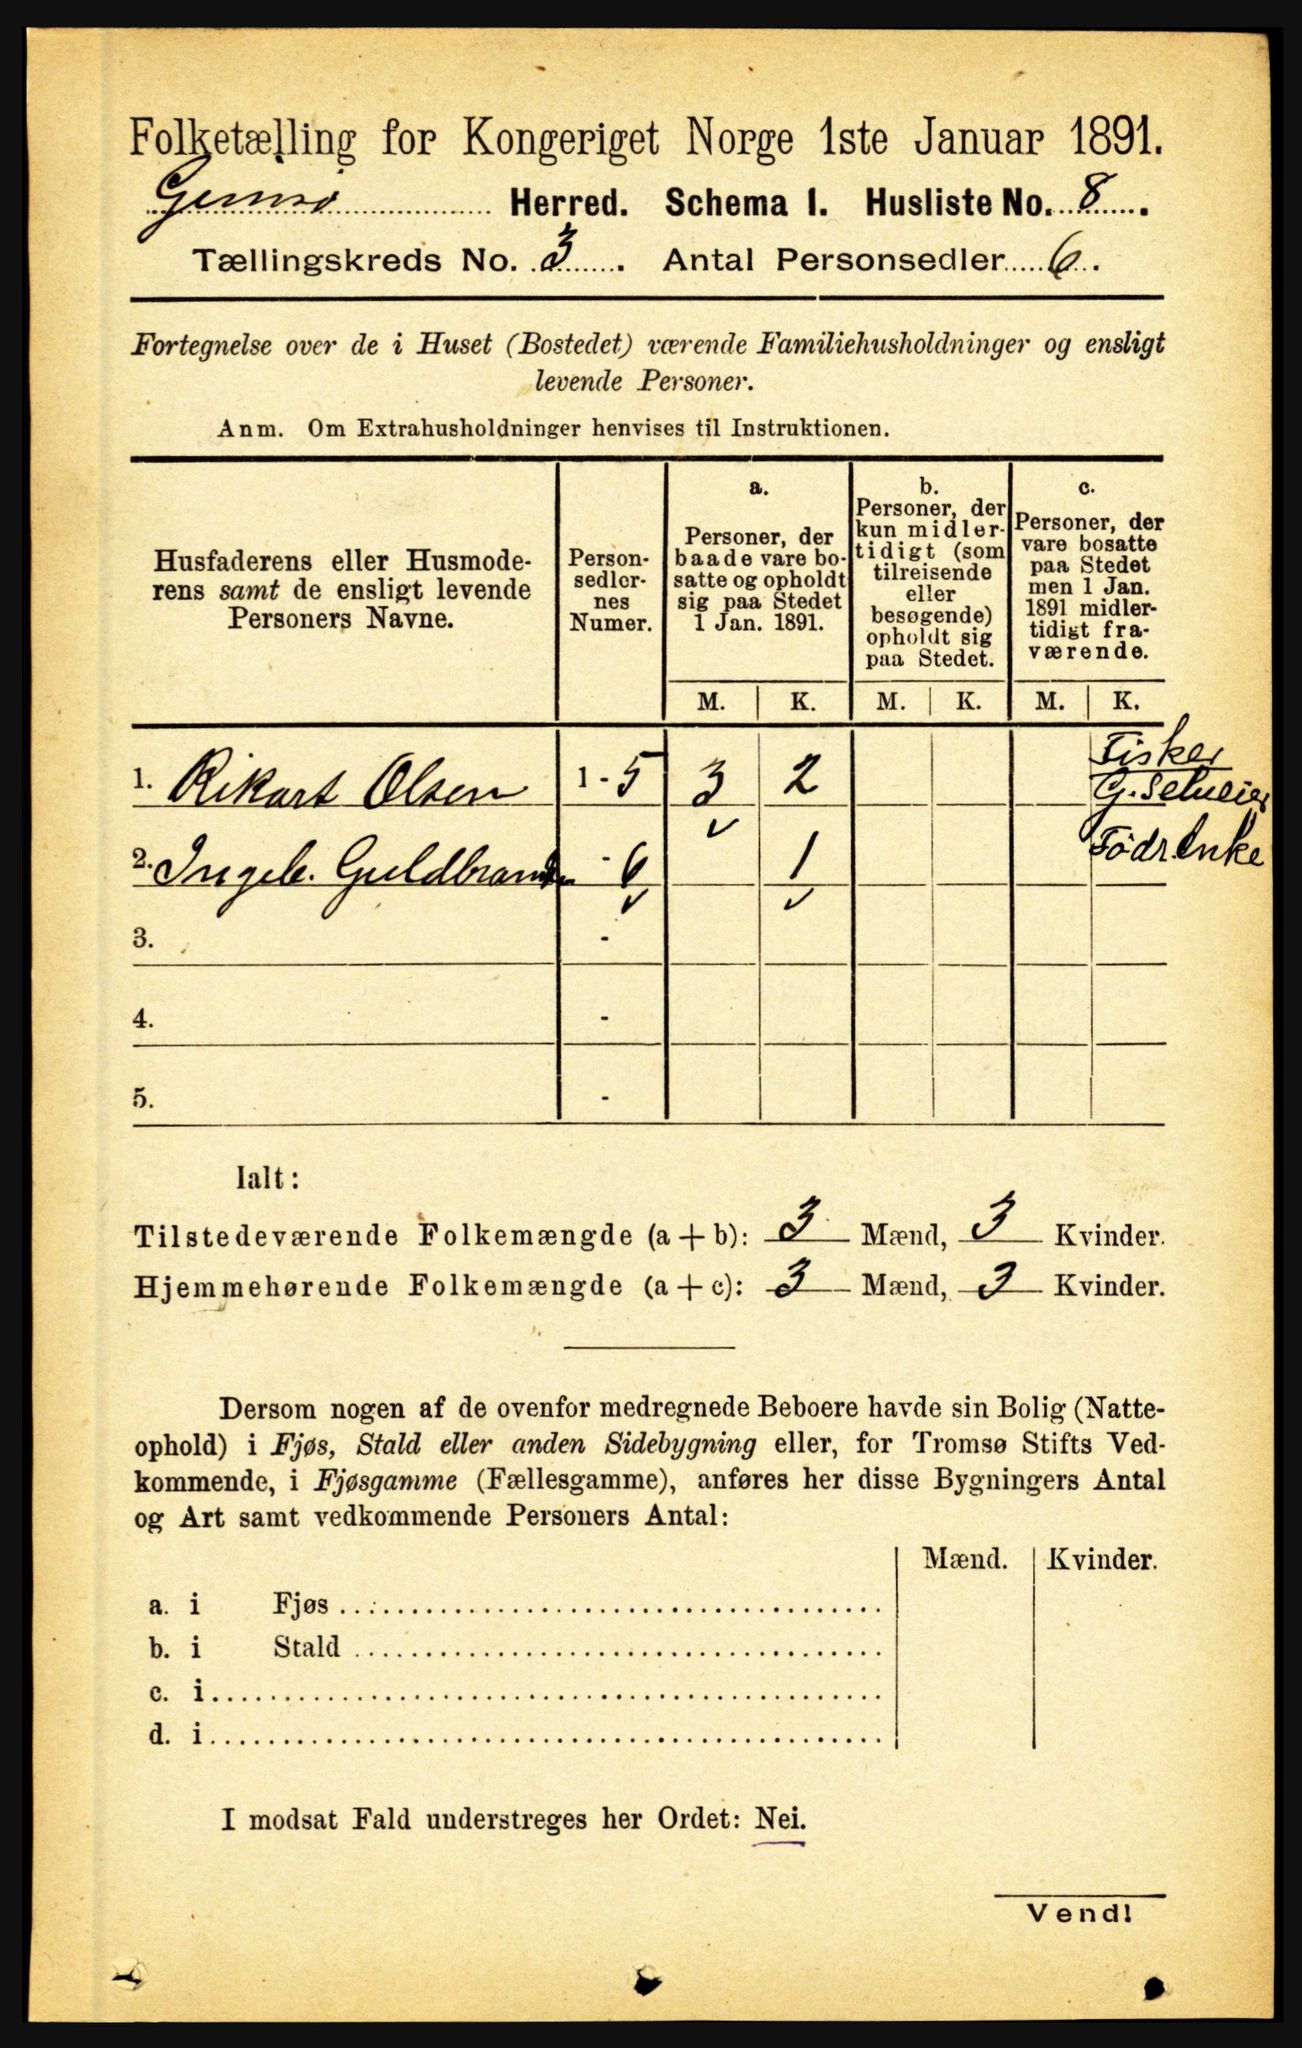 Folketælling for Kongeriget Norge 1ste Januar 1891.
Gimsø Herred. Schema I. Husliste No. 8.
Tællingskreds No. 3. Antal Personsedler 6.
Fortegnelse over de i Huset (Bostedet) værende Familiehusholdninger og ensligt
levende Personer.
Anm. Om Extrahusholdninger henvises til Instruktionen.
Husfaderens eller Husmode-
rens samt de ensligt levende
Personers Navne.
Person-
sedler-
nes
Numer.
a.
Personer, der
baade vare bo-
satte og opholdt
sig paa Stedet
1 Jan. 1891.
b.
Personer, der
kun midler-
tidigt (som
tilreisende
eller
besøgende)
opholdt sig
paa Stedet.
c.
Personer, der
vare bosatte
paa Stedet
men 1 Jan.
1891 midler-
tidigt fra-
værende.
M. K. M. K. M. K.
1. Rikart Olsen 1 - 5 3 2 Fisker
G. Selveier
2. Ingeb. Guldbrands - 6 1 Födr. Enke
3. -
4. -
5. -
Ialt:
Tilstedeværende Folkemængde (a + b): 3 Mænd, 3 Kvinder.
Hjemmehørende Folkemængde (a + c): 3 Mænd, 3 Kvinder.
Dersom nogen af de ovenfor medregnede Beboere havde sin Bolig (Natte-
ophold) i Fjøs, Stald eller anden Sidebygning eller, for Tromsø Stifts Ved-
kommende, i Fjøsgamme (Fællesgamme), anføres her disse Bygningers Antal
og Art samt vedkommende Personers Antal:
Mænd. Kvinder.
a. i Fjøs
b. i Stald
c. i
d. i
I modsat Fald understreges her Ordet: Nei.
Vend!